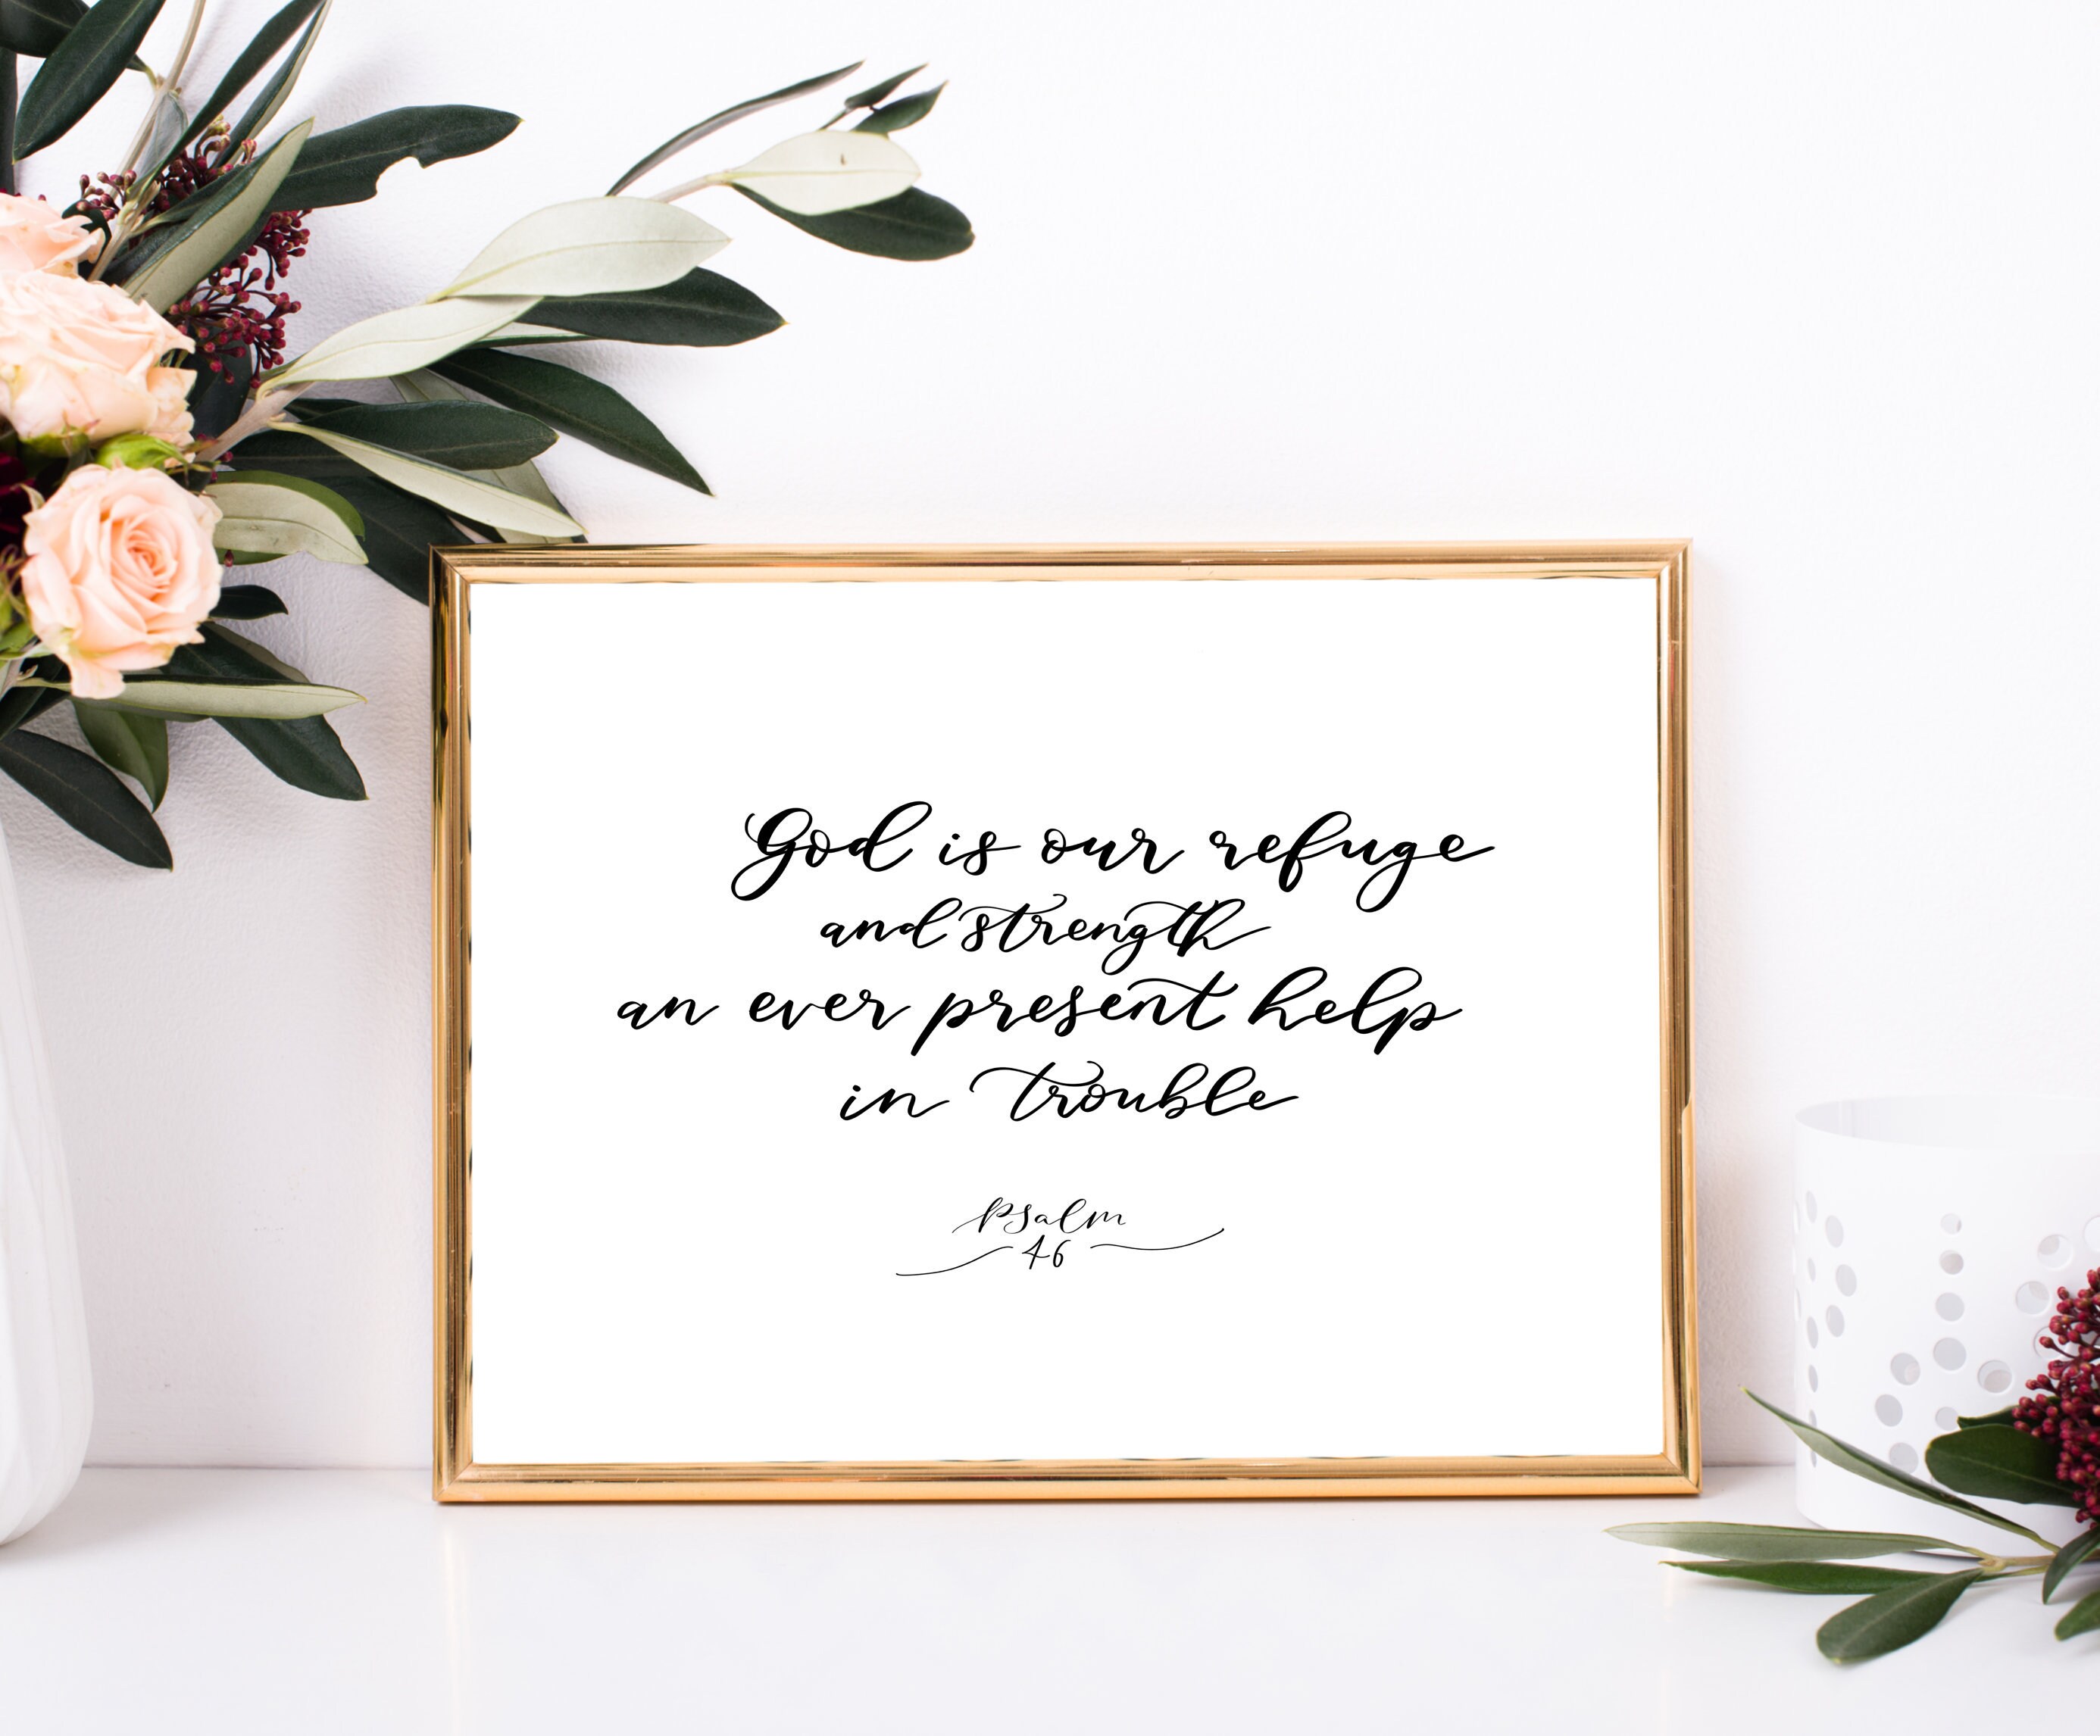 God is our refuge
and strength
an ever present help
in trouble
Psalm
46